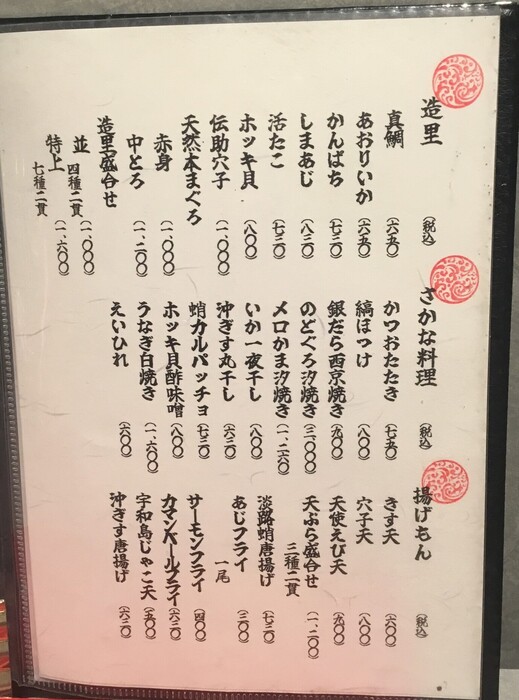 造里 （税込）
真鯛 （六五〇）
あおりいか （六五〇）
かんぱち （七三〇）
しまあじ （八三〇）
活たこ （七三〇）
ホッキ貝 （八〇〇）
伝助穴子 （一、〇〇〇）
天然本まぐろ
赤身 （一、〇〇〇）
中とろ （一、二〇〇）
造里盛合せ
並 四種二貫 （一、〇〇〇）
特上 七種二貫 （一、六〇〇）
さかな料理 （税込）
かつおたたき （七五〇）
縞ほっけ （八〇〇）
銀だら西京焼き （九〇〇）
のどぐろ汐焼き （三、〇〇〇）
メロかま汐焼き （一、二六〇）
いか一夜干し （八〇〇）
沖ぎす丸干し （六三〇）
蛸カルパッチョ （七三〇）
ホッキ貝酢味噌 （八〇〇）
うなぎ白焼き （一、六〇〇）
えいひれ （六〇〇）
揚げもん （税込）
きす天 （六〇〇）
穴子天 （八〇〇）
天使えび天 （九〇〇）
天ぷら盛合せ 三種二貫 （一、二〇〇）
淡路蛸唐揚げ （七三〇）
あじフライ 一尾 （三〇〇）
サーモンフライ （四〇〇）
カマンベールフライ （六三〇）
宇和島じゃこ天 （五〇〇）
沖ぎす唐揚げ （六三〇）